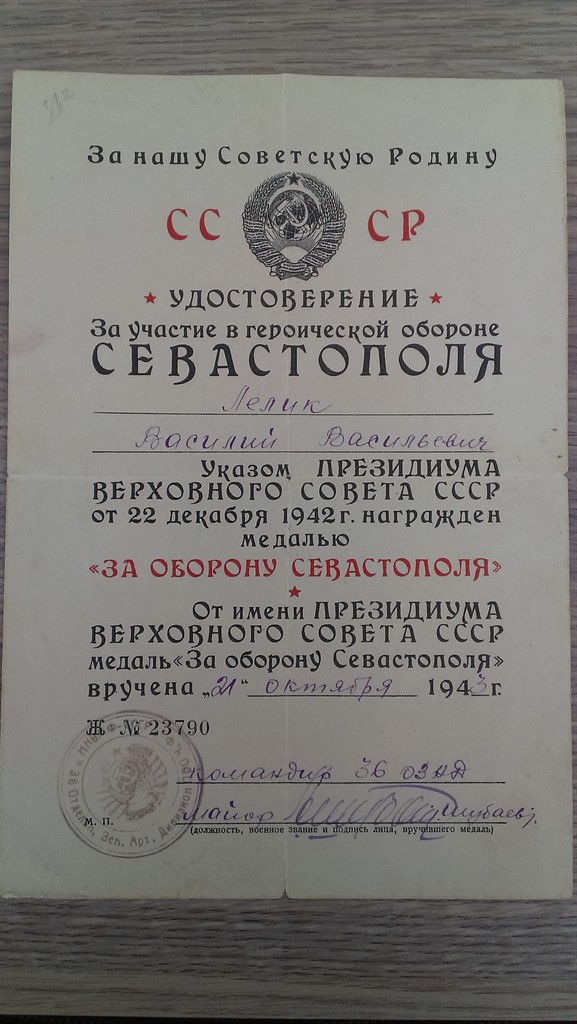 За нашу Советскую Родину
СС СР
УДОСТОВЕРЕНИЕ
За участие в героической обороне
СЕВАСТОПОЛЯ
Лелик
Василий Васильевич
Указом ПРЕЗИДИУМА
ВЕРХОВНОГО СОВЕТА СССР
от 22 декабря 1942 г. награжден
медалью
«ЗА ОБОРОНУ СЕВАСТОПОЛЯ»
От имени ПРЕЗИДИУМА
ВЕРХОВНОГО СОВЕТА СССР
медаль «За оборону Севастополя»
вручена „21“ октября 1943 г.
Ж № 23790
командир 36 ОЗАД
майор
М. П.
(должность, военное звание и подпись лица, вручившего медаль)
36 Отдельн. Зен. Арт. Дивизион